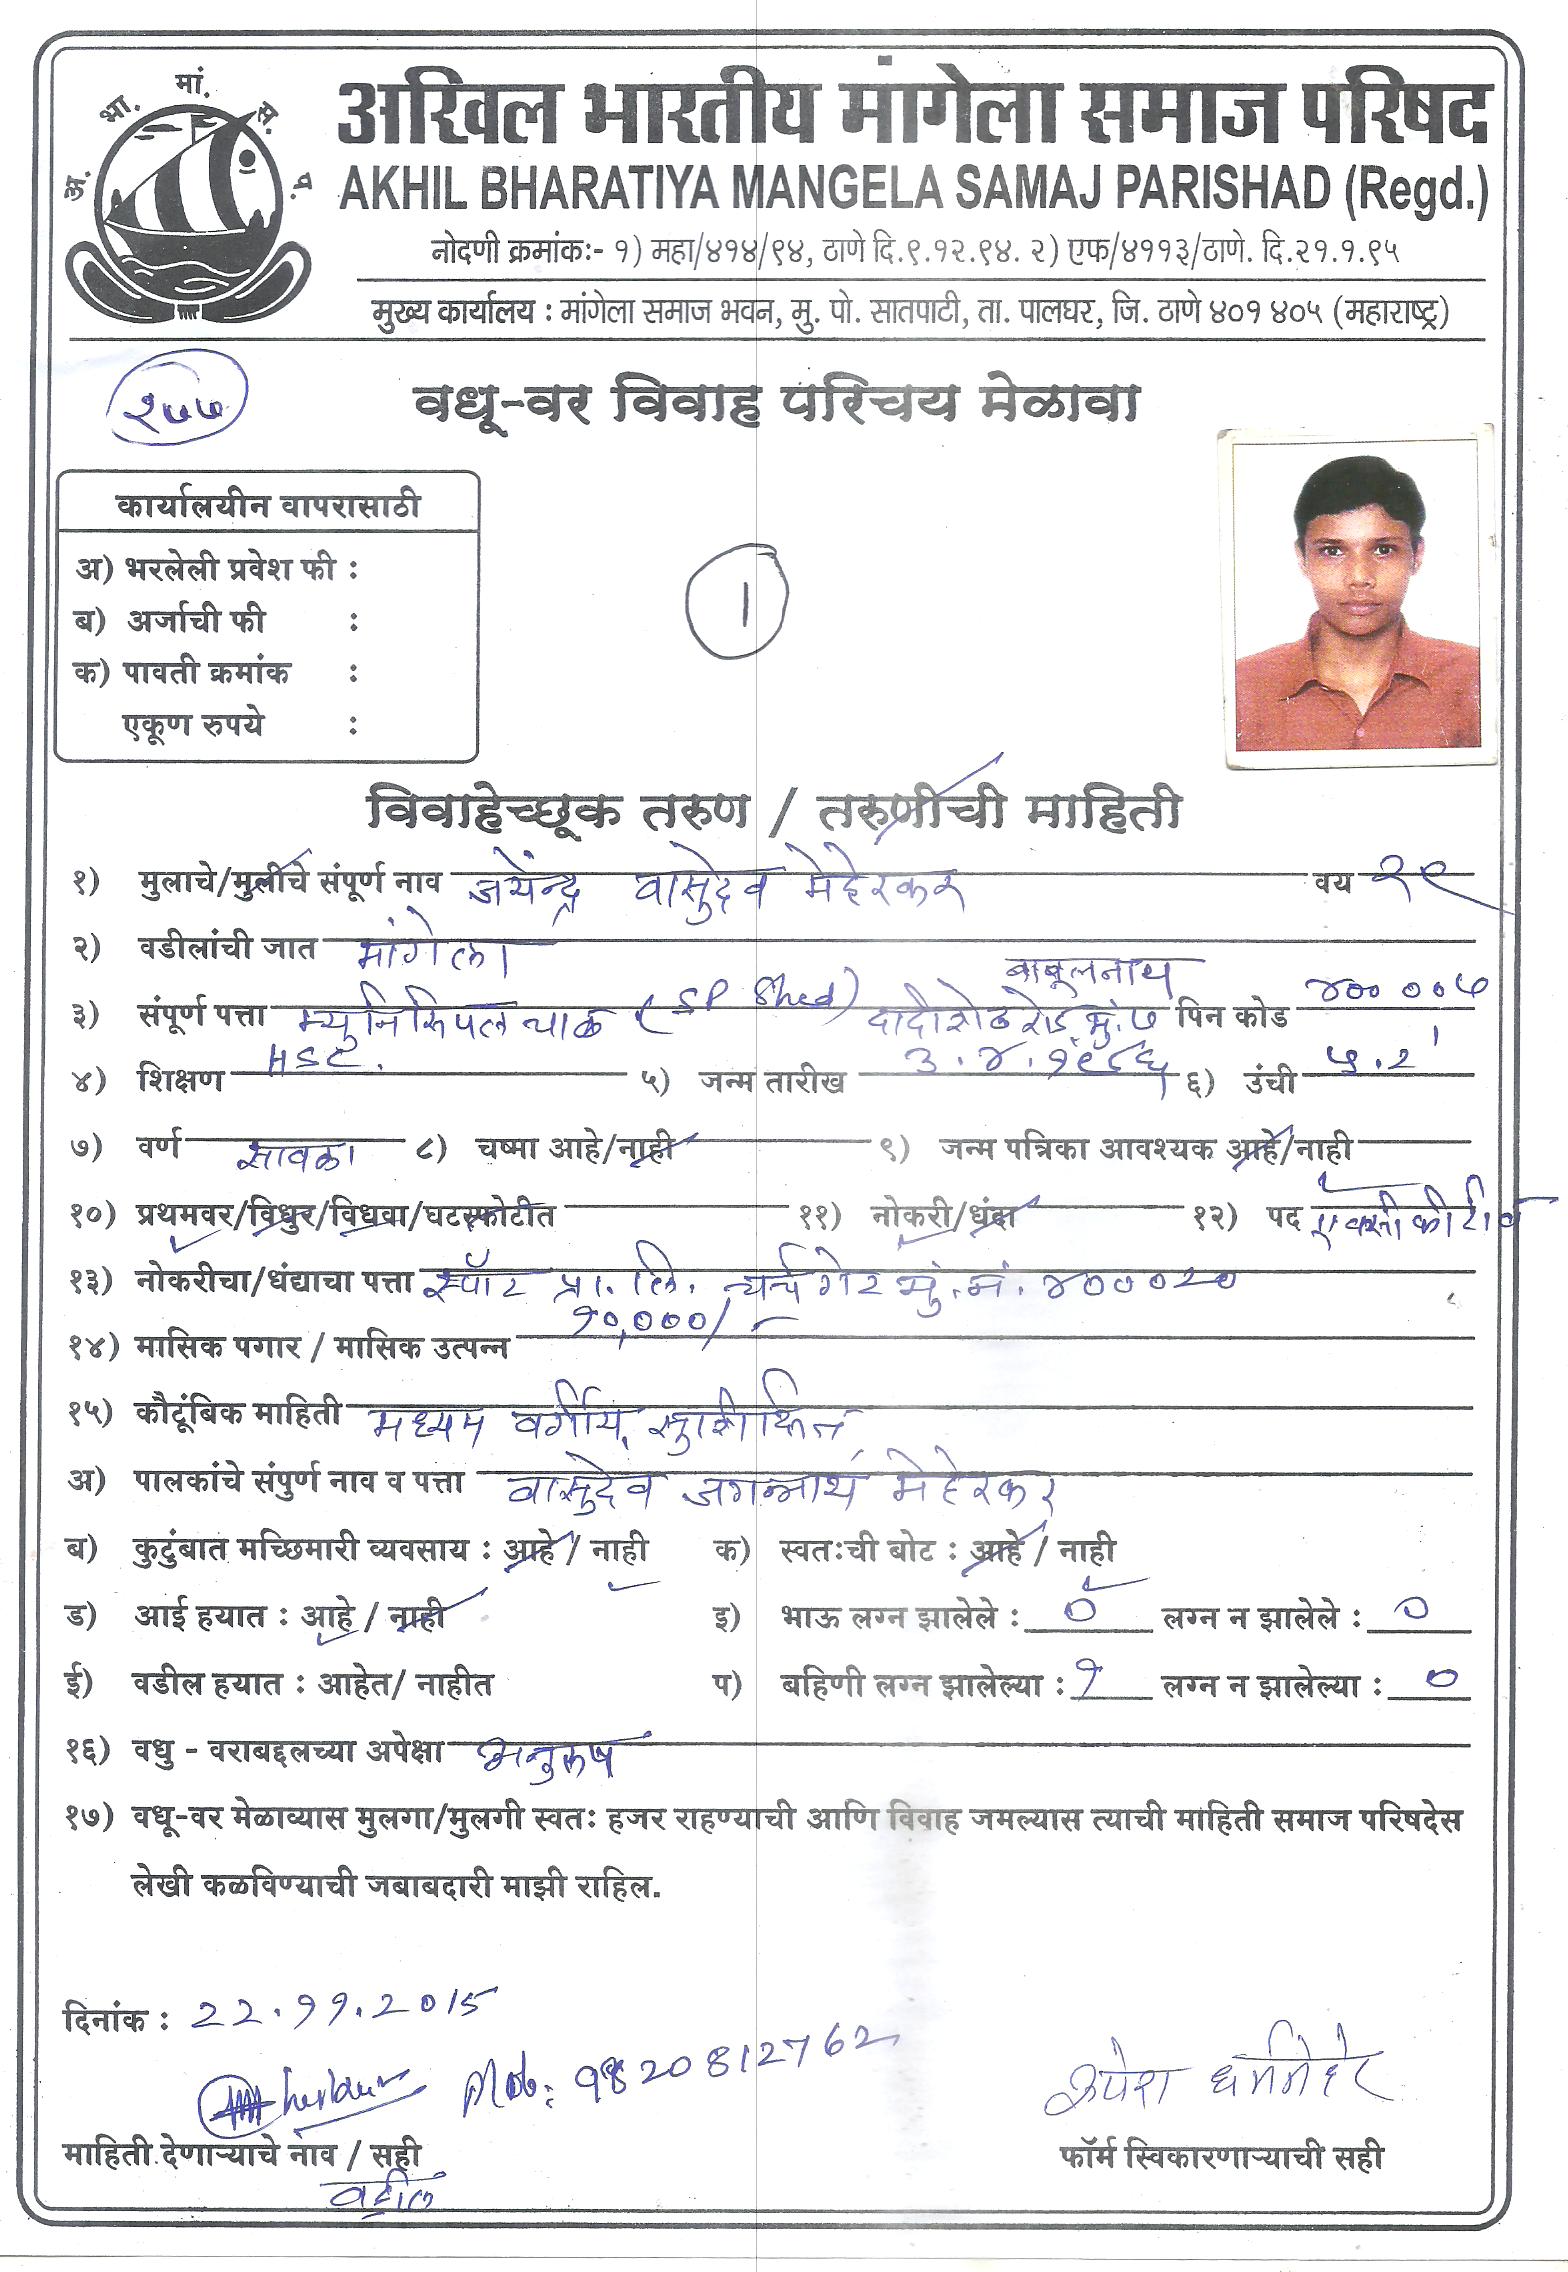 अ. भा. मां. स. प.
अखिल भारतीय मांगेला समाज परिषद
AKHIL BHARATIYA MANGELA SAMAJ PARISHAD (Regd.)
नोदणी क्रमांकः- १) महा/४१४/९४, ठाणे दि.९.१२.९४. २) एफ/४११३/ठाणे. दि.२१.१.९५
मुख्य कार्यालय : मांगेला समाज भवन, मु. पो. सातपाटी, ता. पालघर, जि. ठाणे ४०१ ४०५ (महाराष्ट्र)
१७७
वधू-वर विवाह परिचय मेळावा
कार्यालयीन वापरासाठी
अ) भरलेली प्रवेश फी :
ब) अर्जाची फी :
क) पावती क्रमांक :
एकूण रुपये :
1
विवाहेच्छूक तरुण / तरुणीची माहिती
१) मुलाचे/मुलीचे संपूर्ण नाव जयेंन्द्र वासुदेव मेहेरकर वय २९
२) वडीलांची जात मांगेला
बाबूलनाथ
३) संपूर्ण पत्ता म्युनिसिपल चाळ (SP Shed) दादीशेठ रोड मुं. ७ पिन कोड ४०० ००७
४) शिक्षण HSC. ५) जन्म तारीख ३.४.१९८६ ६) उंची ५.२'
७) वर्ण सावळा ८) चष्मा आहे/नाही ९) जन्म पत्रिका आवश्यक आहे/नाही
१०) प्रथमवर/विधुर/विधवा/घटस्फोटीत ११) नोकरी/धंदा १२) पद एक्सीकीटीव
१३) नोकरीचा/धंद्याचा पत्ता स्पॉट प्रा. लि. चर्चगेट मुं. नं. ४०००२०
१४) मासिक पगार / मासिक उत्पन्न १०,०००/-
१५) कौटूंबिक माहिती मध्यम वर्गीय, सुशीक्षित
अ) पालकांचे संपुर्ण नाव व पत्ता वासुदेव जगन्नाथ मेहेरकर
ब) कुटुंबात मच्छिमारी व्यवसाय : आहे / नाही क) स्वतःची बोट : आहे / नाही
ड) आई हयात : आहे / नाही इ) भाऊ लग्न झालेले : 0 लग्न न झालेले : 0
ई) वडील हयात : आहेत/ नाहीत प) बहिणी लग्न झालेल्या : १ लग्न न झालेल्या : 0
१६) वधु - वराबद्दलच्या अपेक्षा अनुरूप
१७) वधू-वर मेळाव्यास मुलगा/मुलगी स्वतः हजर राहण्याची आणि विवाह जमल्यास त्याची माहिती समाज परिषदेस
लेखी कळविण्याची जबाबदारी माझी राहिल.
दिनांक : 22.११.2015
Mob: 9820812762 रुपेश धर्ममेहेर
माहिती देणाऱ्याचे नाव / सही फॉर्म स्विकारणाऱ्याची सही
वडील